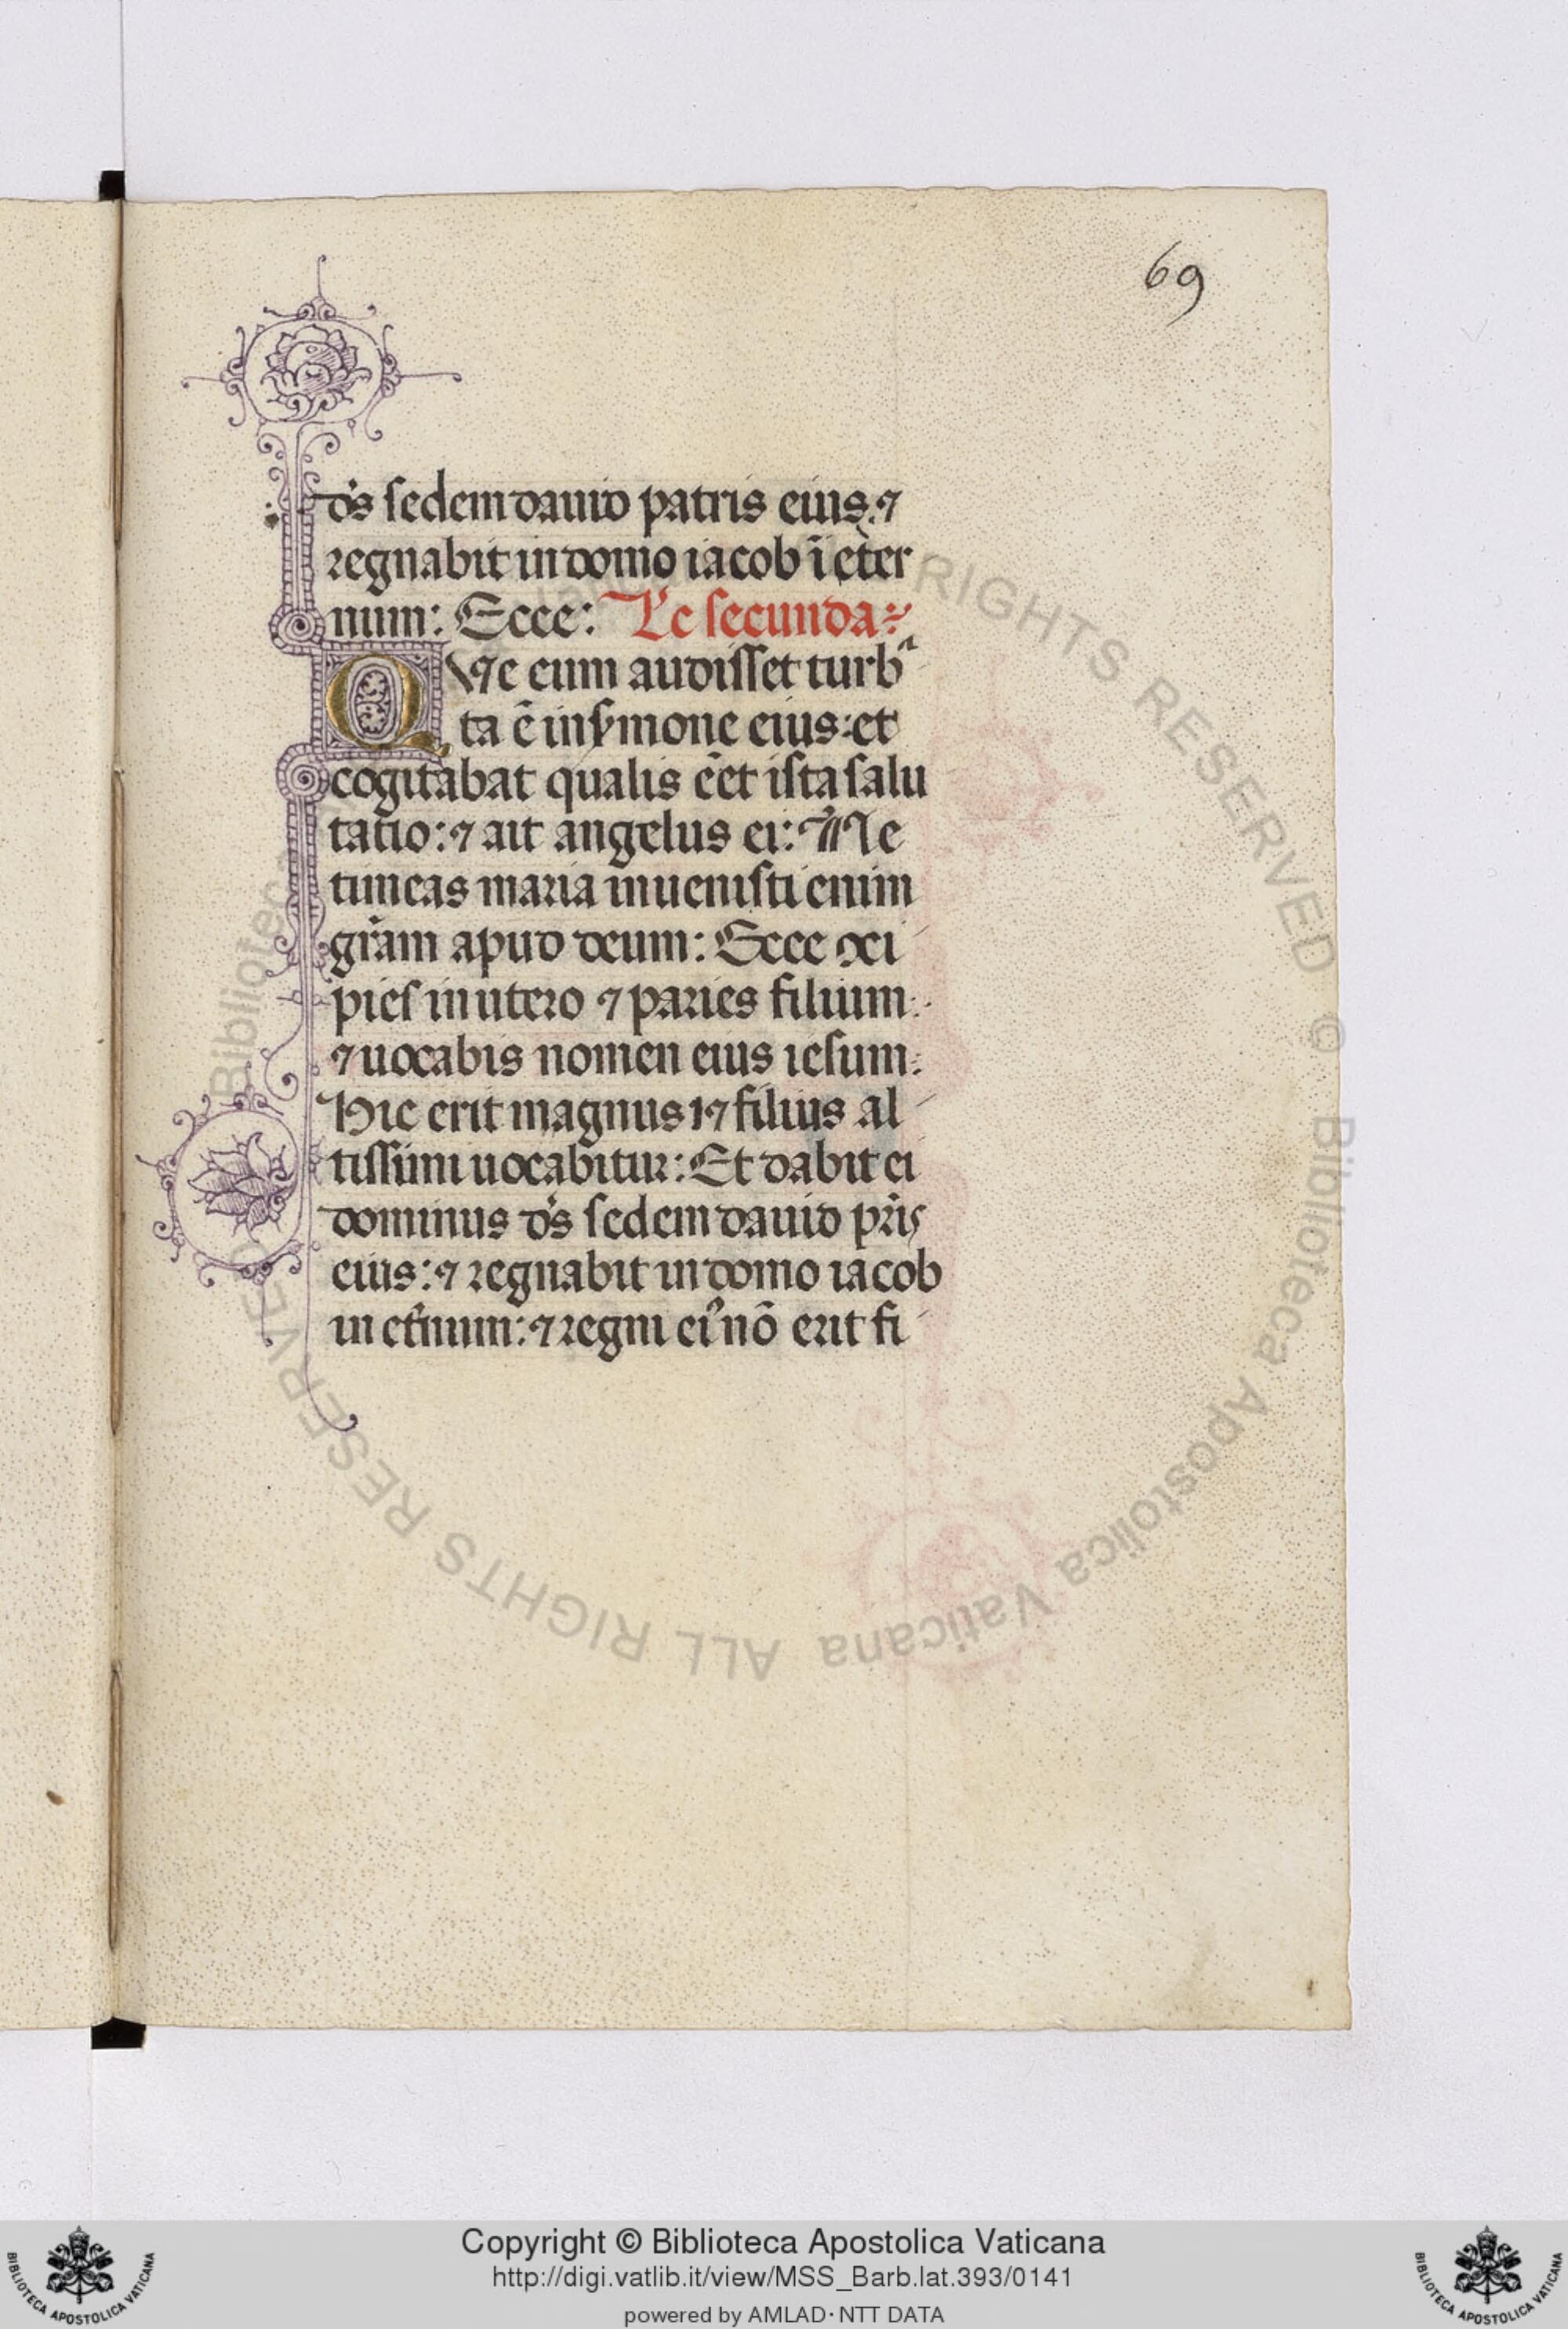 69
ds̄ sedem dauid patris eius: ⁊
regnabit in domo iacob ī eter
num: Ecce: Lc̄ secunda:
Q Ve cum audisset turbᵃ
ta ē in s̄mone eius: et
cogitabat qualis eēt ista salu
tatio: ⁊ ait angelus ei: Ne
timeas maria inuenisti enim
gr̄am apud deum: Ecce ɔci
pies in utero ⁊ paries filium:
⁊ uocabis nomen eius iesum:
Hic erit magnus ⁊ filius al
tissimi uocabitur: Et dabit ei
dominus ds̄ sedem dauid pr̄is
eius: ⁊ regnabit in domo iacob
in et̄num: ⁊ regni eiꝰ nō erit fi
Biblioteca Apostolica Vaticana ALL RIGHTS RESERVED © Biblioteca
RIGHTS RESERVED ©
Copyright © Biblioteca Apostolica Vaticana
http://digi.vatlib.it/view/MSS_Barb.lat.393/0141
powered by AMLAD·NTT DATA
BIBLIOTECA APOSTOLICA VATICANA
BIBLIOTECA APOSTOLICA VATICANA